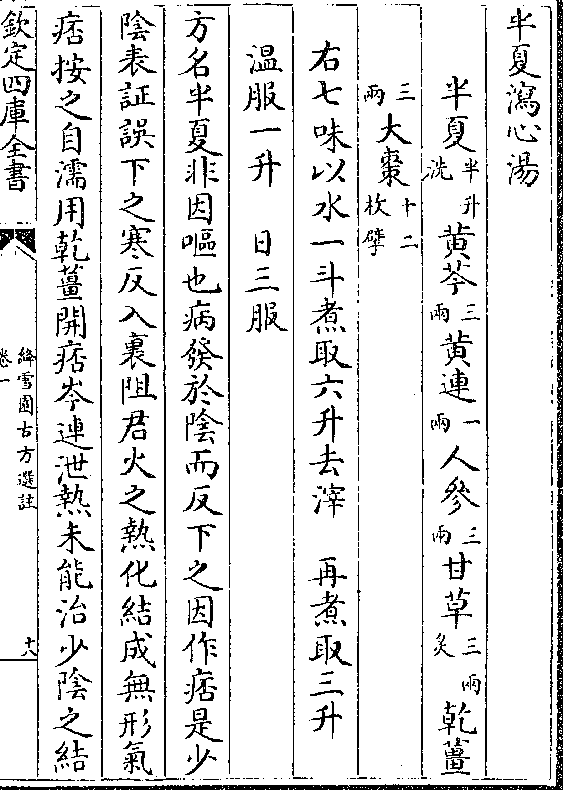 半夏瀉心湯
半夏半升洗黄芩三兩黄連一兩人參三兩甘草三兩炙乾薑
三兩大棗十二枚擘
右七味以水一斗煮取六升去滓 再煮取三升
温服一升 日三服
方名半夏非因嘔也病發於陰而反下之因作痞是少
陰表証誤下之寒反入裏阻君火之熱化結成無形氣
痞按之自濡用乾薑開痞芩連泄熱未能治少陰之結
欽定四庫全書
絳雪園古方選註
卷一
十八